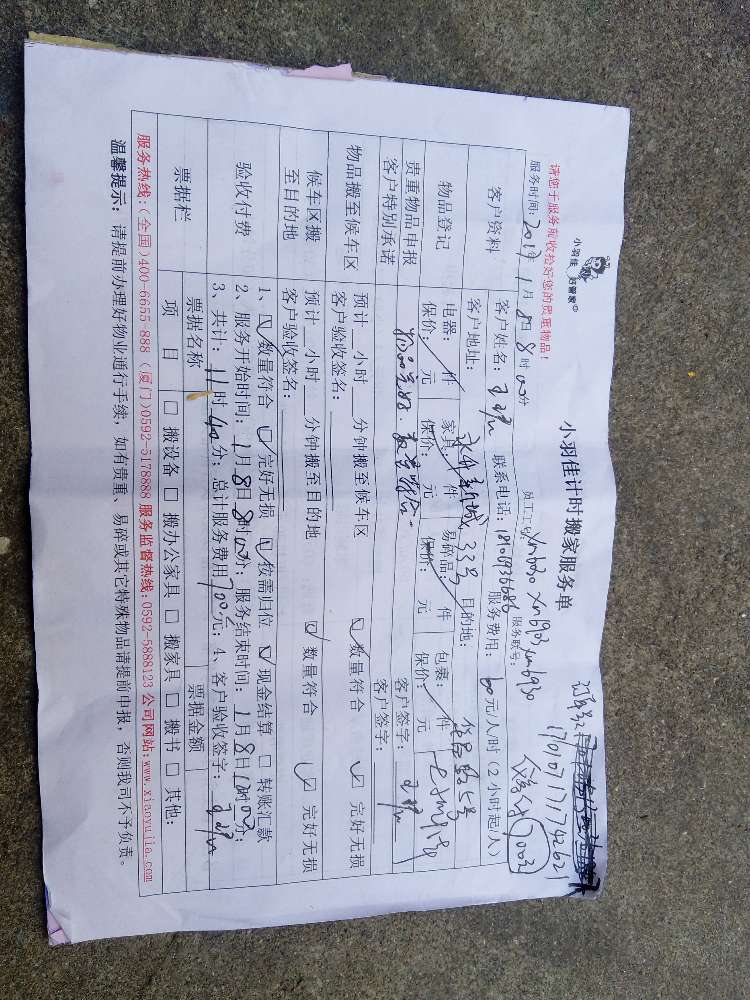 小羽佳计时搬家服务单
小羽佳 好管家
请您于服务前收拾好您的贵重物品!
订单号
17010711174262
服务时间:2017年1月8日8时00分 员工工号:xm6030 xm6903 xm6930 服务联号:
客户资料
客户姓名: 联系电话: 服务费用:60元/人/时(2小时起/人)
客户地址: 33号 目的地:
物品登记
电器: 件 家具: 件 易碎品: 件 包裹: 件
保价: 元 保价: 元 保价: 元 保价: 元
贵重物品申报
客户特别承诺
物品完好,数量符合. 客户签字:
物品搬至候车区
预计 小时 分钟搬至候车区 ☑ 数量符合 ☑ 完好无损
客户验收签名: 客户签字:
候车区搬
至目的地
预计 小时 分钟搬至目的地 ☑ 数量符合 ☑ 完好无损
客户验收签名:
验收付费
1、☑ 数量符合 ☑ 完好无损 ☑ 按需归位 ☑ 现金结算 □ 转账汇款
2、服务开始时间:1月8日8时00分;服务结束时间:1月8日
3、共计:11时40分;总计服务费用700元;4、客户验收签字:
票据栏
票据名称 票据金额
项 目 □ 搬设备 □ 搬办公家具 □ 搬家具 □ 搬书 □ 其他:
服务热线:(全国)400-6655-888 (厦门)0592-5178888 服务监督热线:0592-5888123 公司网站:www.xiaoyujia.com
温馨提示:请提前办理好物业通行手续,如有贵重、易碎或其它特殊物品请提前申报,否则我司不予负责。